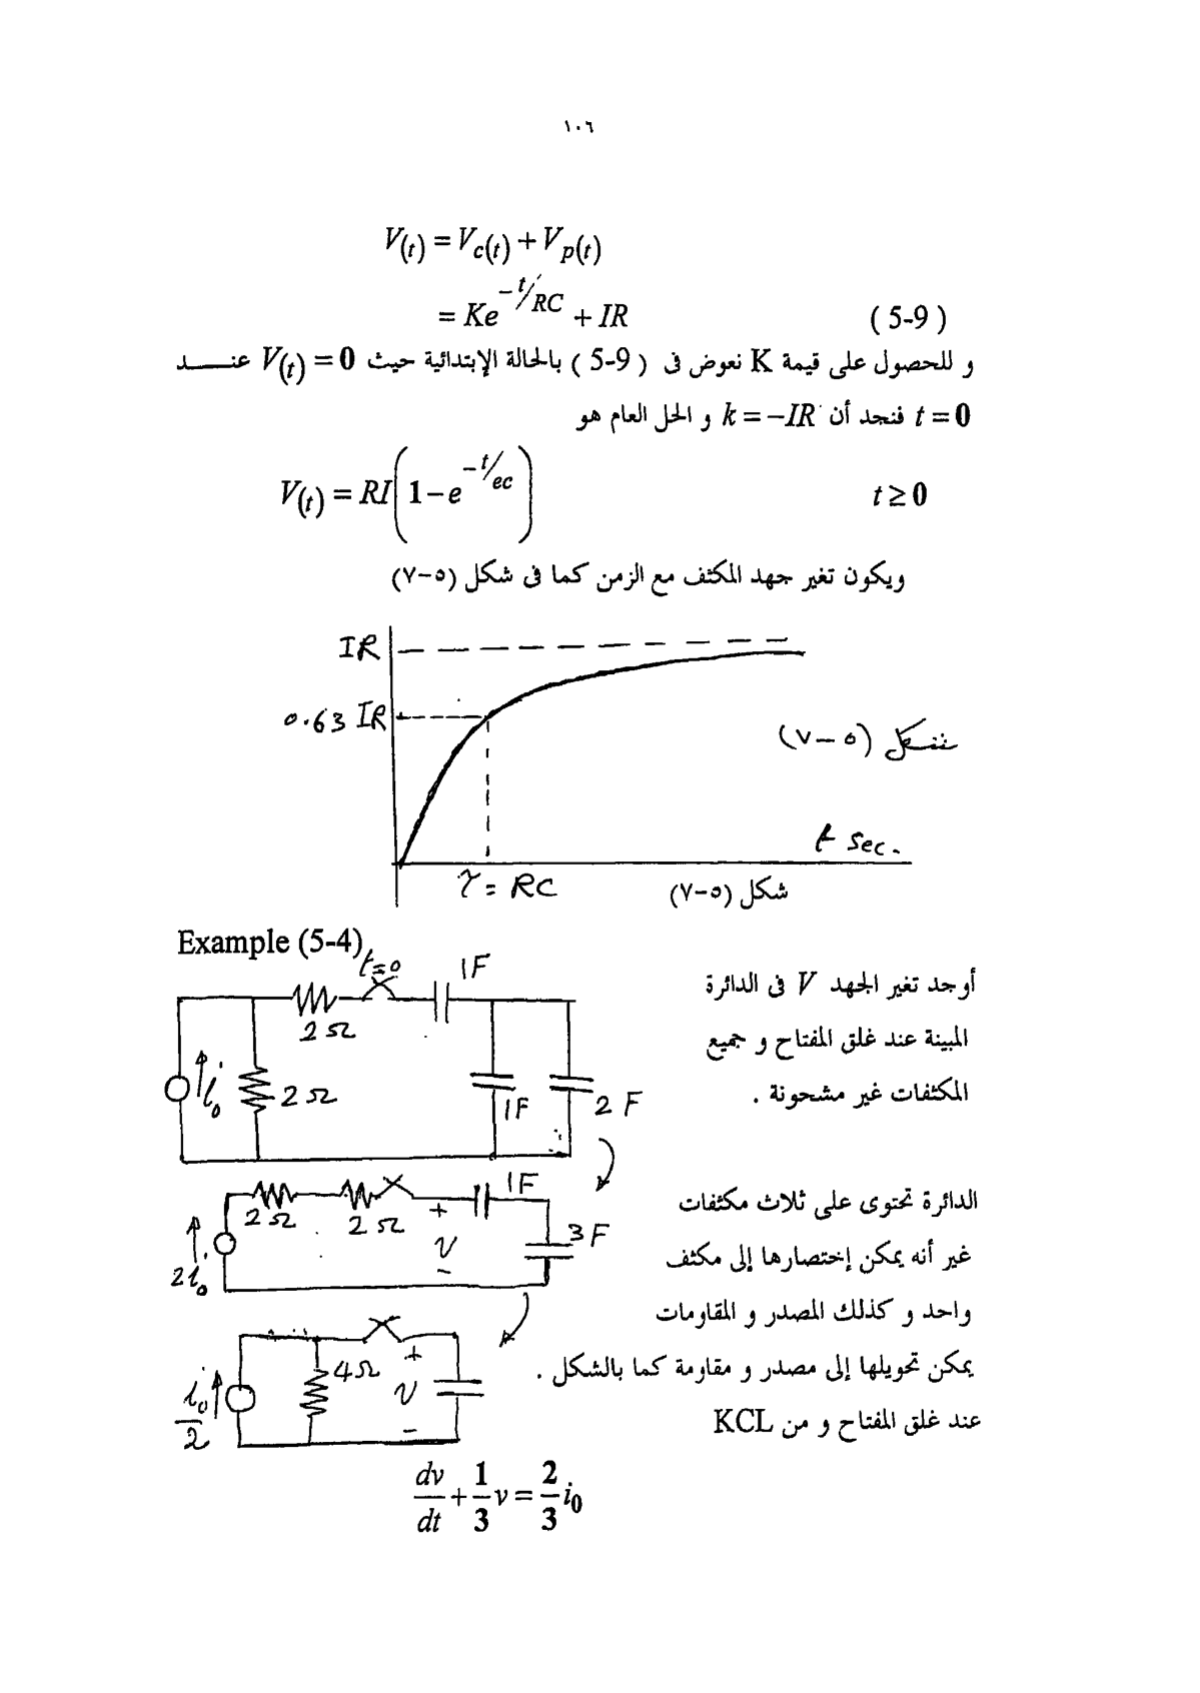 ١٠٦
V(t) = Vc(t) + Vp(t)
= Ke^(-t/RC) + IR ( 5-9 )
و للحصول على قيمة K نعوض فى ( 5-9 ) بالحالة الإبتدائية حيث V(t) = 0 عنـــد
t = 0 فنجد أن k = −IR و الحل العام هو
V(t) = RI(1 − e^(-t/ec)) t ≥ 0
ويكون تغير جهد المكثف مع الزمن كما فى شكل (٥-٧)
IR
0.63 IR
شكل (٥-٧)
t sec.
τ = RC
شكل (٥-٧)
Example (5-4)
t=0
1F
2Ω
i₀
2Ω
1F
2 F
أوجد تغير الجهد V فى الدائرة
المبينة عند غلق المفتاح و جميع
المكثفات غير مشحونة .
1F
2Ω
2Ω
+
V
−
3F
2i₀
الدائرة تحتوى على ثلاث مكثفات
غير أنه يمكن إختصارها إلى مكثف
واحد و كذلك المصدر و المقاومات
يمكن تحويلها إلى مصدر و مقاومة كما بالشكل .
عند غلق المفتاح و من KCL
i₀/2
4Ω
+
V
−
dv/dt + 1/3 v = 2/3 i₀